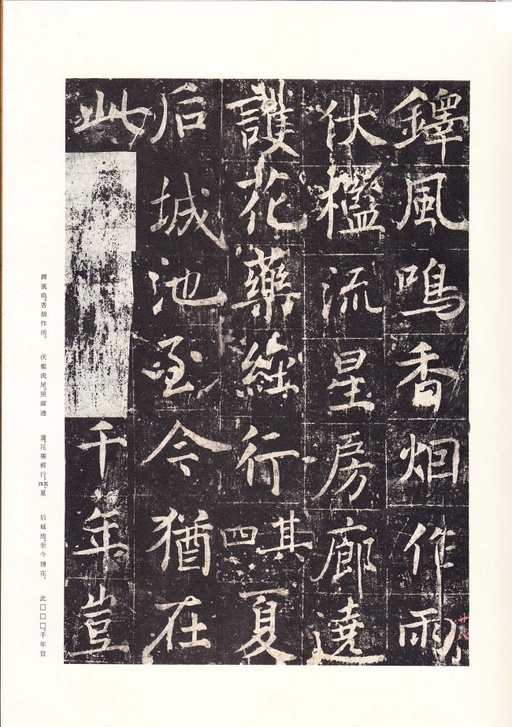 鐸風鳴香烟作雨
伏檻流星房廊遶
護花藥經行其四夏
后城池至今猶在
此千年豈
鐸風鳴。香烟作雨。 伏檻流星。房廊遶 護花藥經行。其四。夏 后城池。至今猶在。 此□□□。千年豈